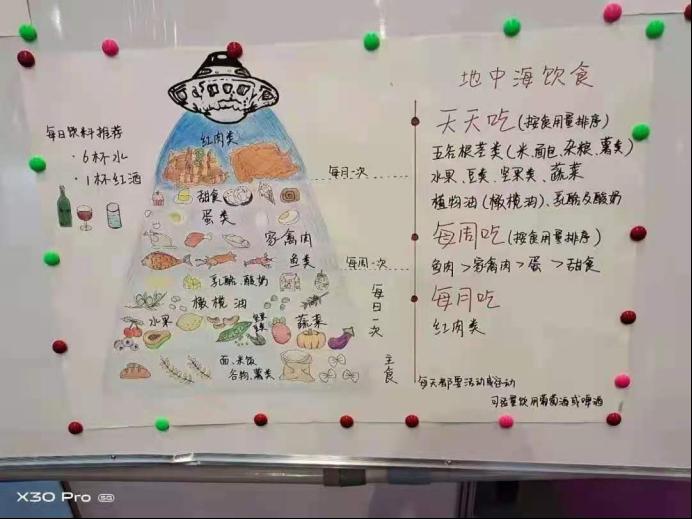 地中海饮食
每日饮料推荐
·6杯水
·1杯红酒
红肉类
每月一次
甜食
蛋类
家禽肉
鱼类
每周一次
乳酪、酸奶
橄榄油
水果
坚果
豆类
蔬菜
每日一次
面、米饭
谷物、薯类
主食
天天吃(按食用量排序)
五谷根茎类(米、面包、杂粮、薯类)
水果、豆类、坚果类、蔬菜
植物油(橄榄油)、乳酪及酸奶
每周吃(按食用量排序)
鱼肉>家禽肉>蛋>甜食
每月吃
红肉类
每天都要活动或运动
可适量饮用葡萄酒或啤酒
X30 Pro 5G